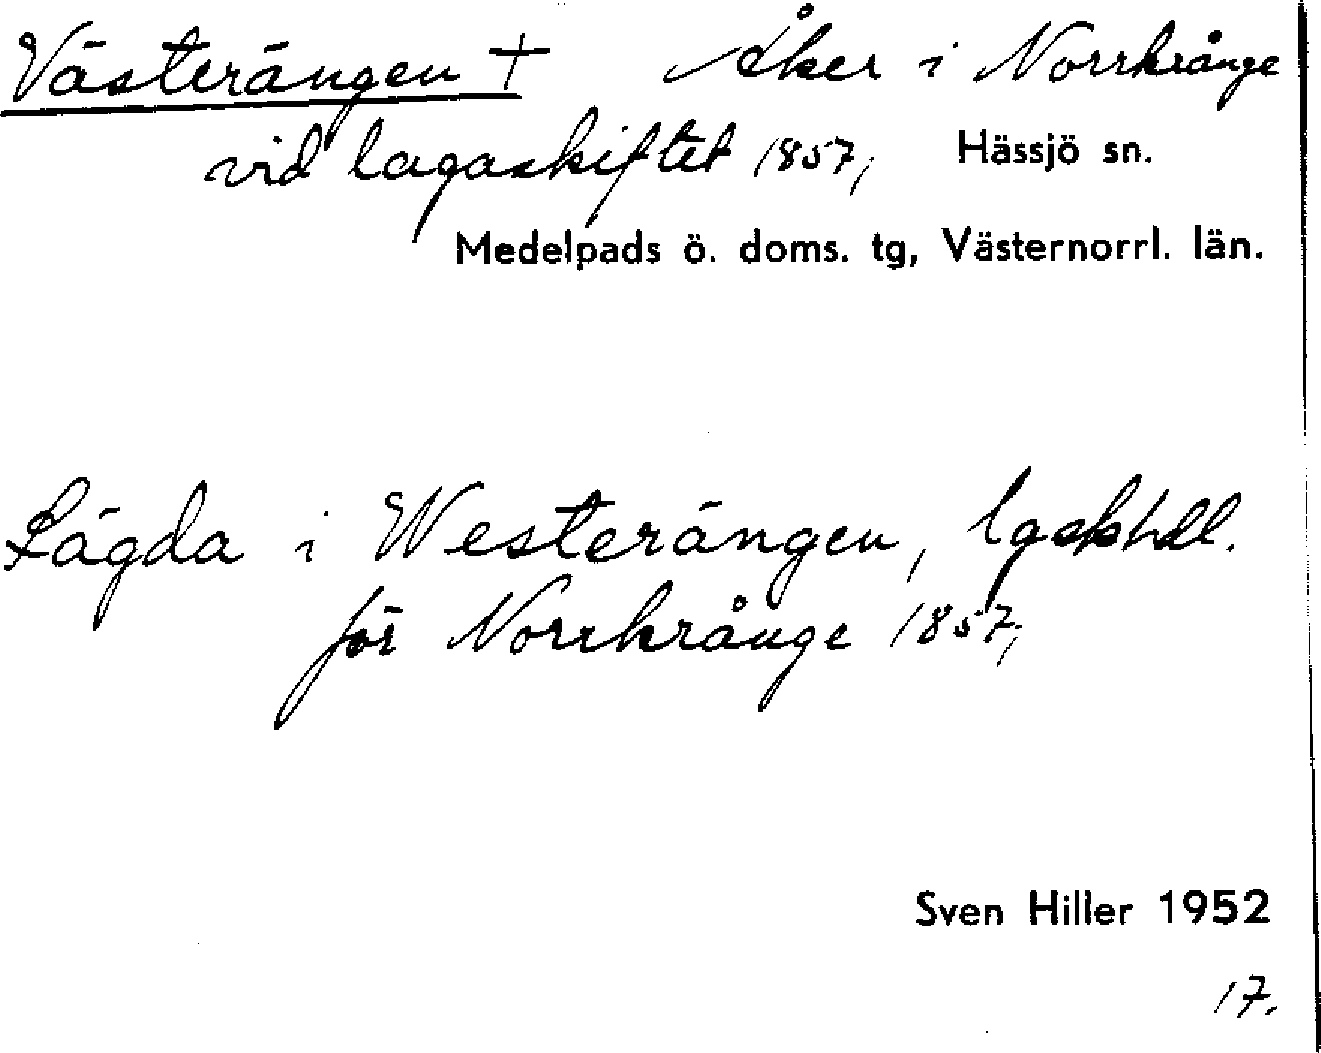 Västerängen + Åker i Norrkrånge
vid lagaskiftet 1857, Hässjö sn.
Medelpads ö. doms. tg, Västernorrl. län.
Lägda i Westerängen, lgskhdl.
för Norrkrånge 1857;
Sven Hiller 1952
17.